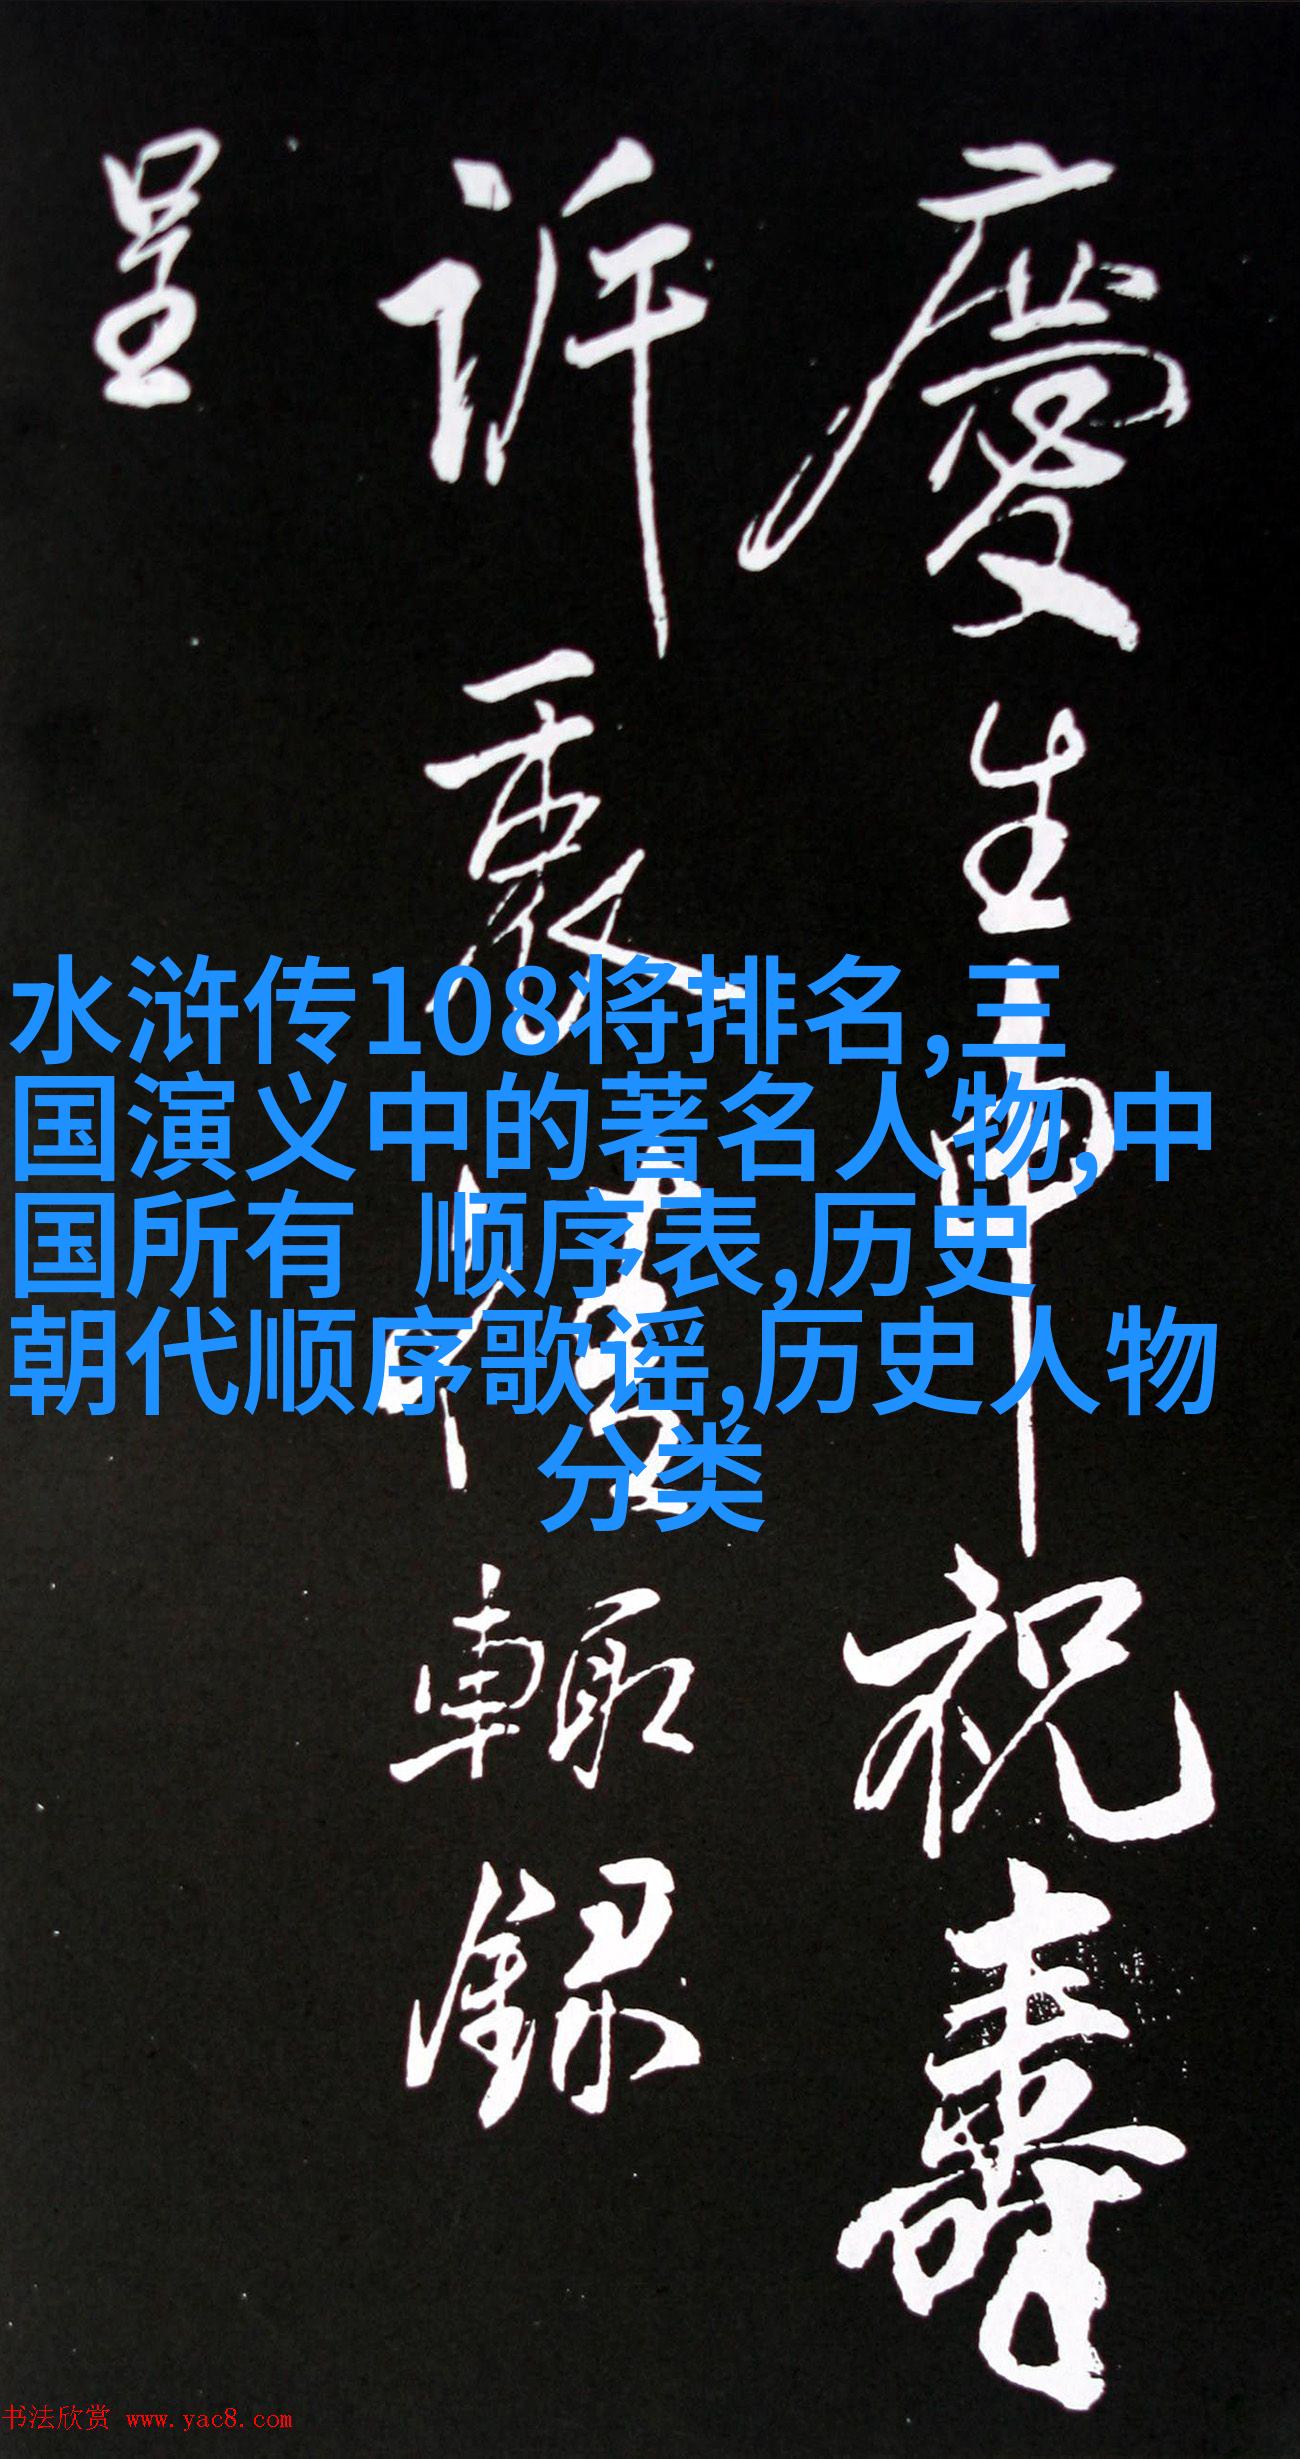 慶生申祝壽
訴衷情輙録
呈
水浒传108将排名,三
国演义中的著名人物,中
国所有 顺序表,历史
朝代顺序歌谣,历史人物
分类
书法欣赏 www.yac8.com